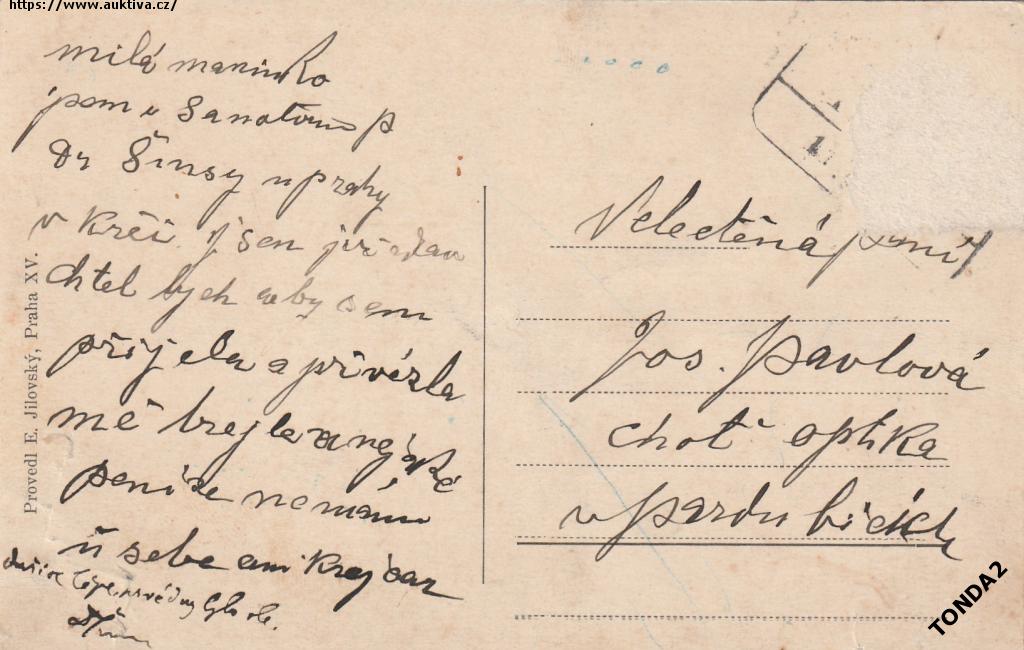 https://www.auktiva.cz/
milá maminko
jsem v Sanatoriu p
Dr Šimsy u prahy
v Krči. Jsem
chtel bych aby sem
přijela a přivézla
mě brejle a nejaké
penize nemám
u sebe ani krejcar
Provedl E. Jílovský, Praha XV.
Velectěná paní
Jos. Pavlová
choť optika
v Pardubicích
TONDA2